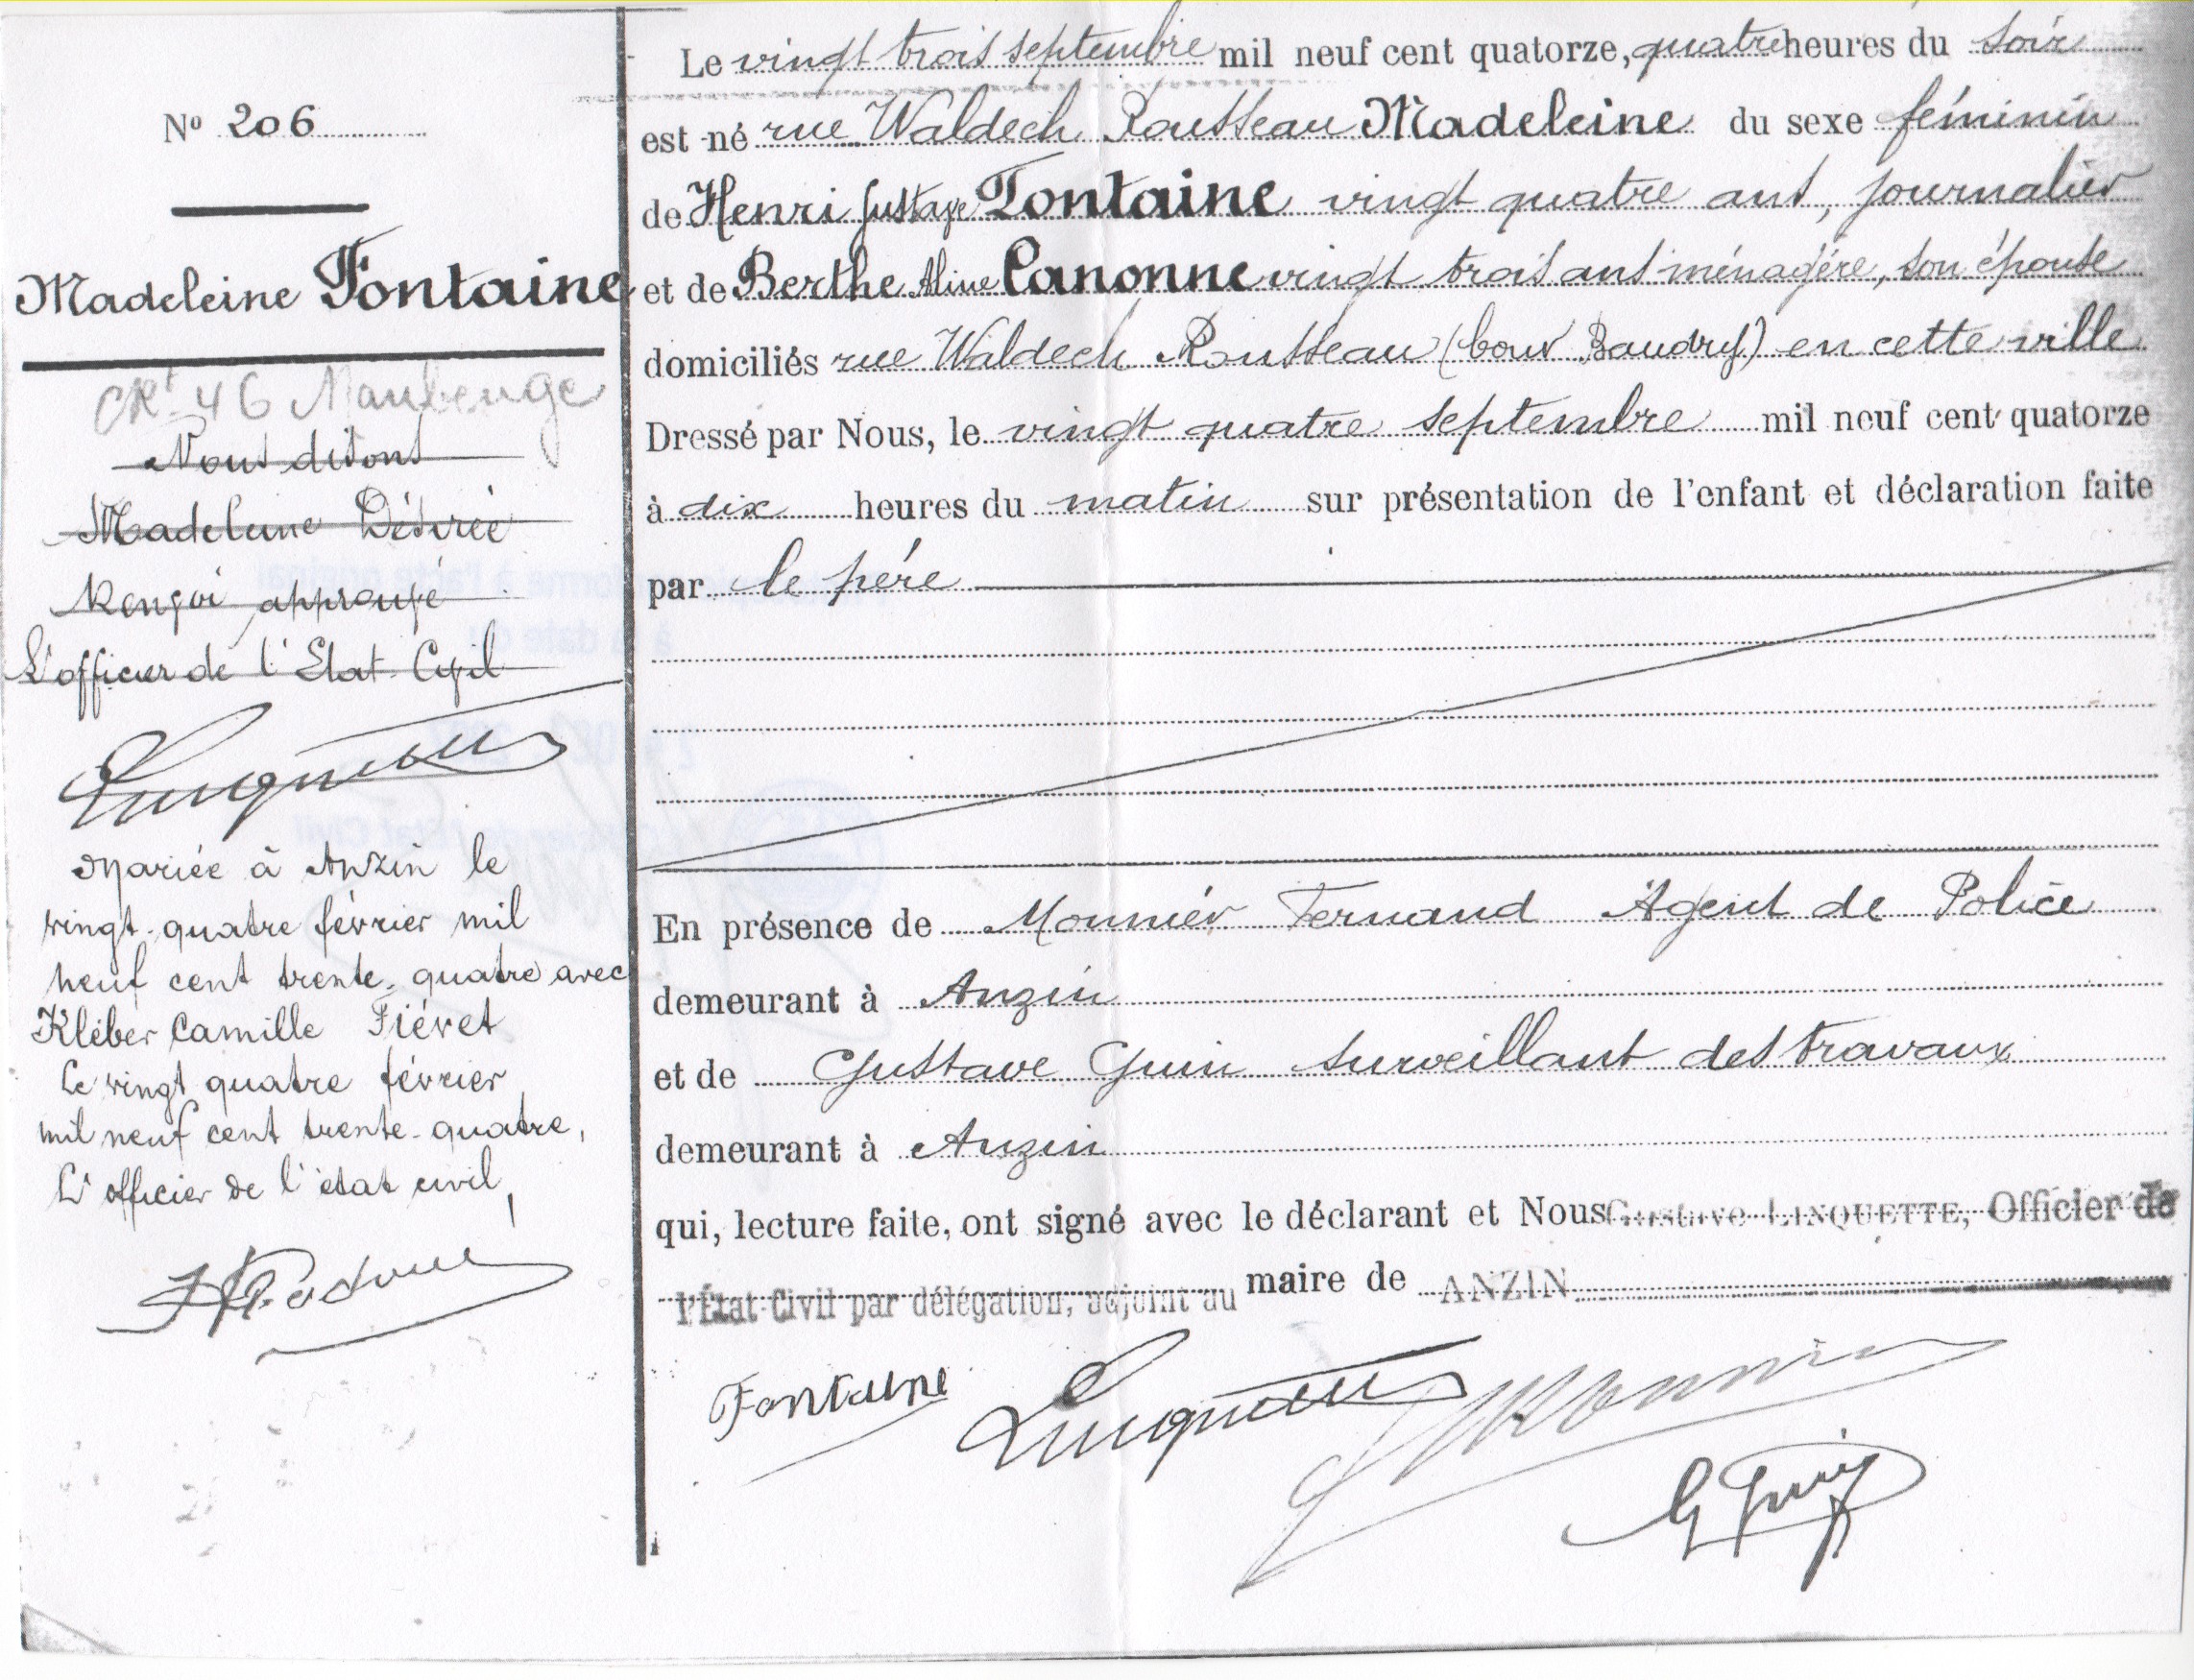 Nº 206
Madeleine Fontaine
46 Maubeuge
Nous disons
Madeleine Désirée
Renvoi approuvé
L'officier de l'Etat Civil
Mariée à Anzin le
vingt-quatre février mil
neuf cent trente-quatre avec
Kléber Camille Fiévet
Le vingt quatre février
mil neuf cent trente-quatre,
L'officier de l'état civil,
Le vingt trois septembre mil neuf cent quatorze, quatre heures du soir
est né rue Waldeck Rousseau Madeleine du sexe féminin
de Henri Gustave Fontaine vingt quatre ans, journalier
et de Berthe Aline Canonne vingt trois ans ménagère, son épouse
domiciliés rue Waldeck Rousseau (cour Baudry) en cette ville
Dressé par Nous, le vingt quatre septembre mil neuf cent quatorze
à dix heures du matin sur présentation de l'enfant et déclaration faite
par le père
En présence de Monnier Fernand Agent de Police
demeurant à Anzin
et de Gustave Guin surveillant des travaux
demeurant à Anzin
qui, lecture faite, ont signé avec le déclarant et Nous Gustave LINQUETTE, Officier de
l'État-Civil par délégation, adjoint au maire de ANZIN
Fontaine Linquette Monnier
G Guin